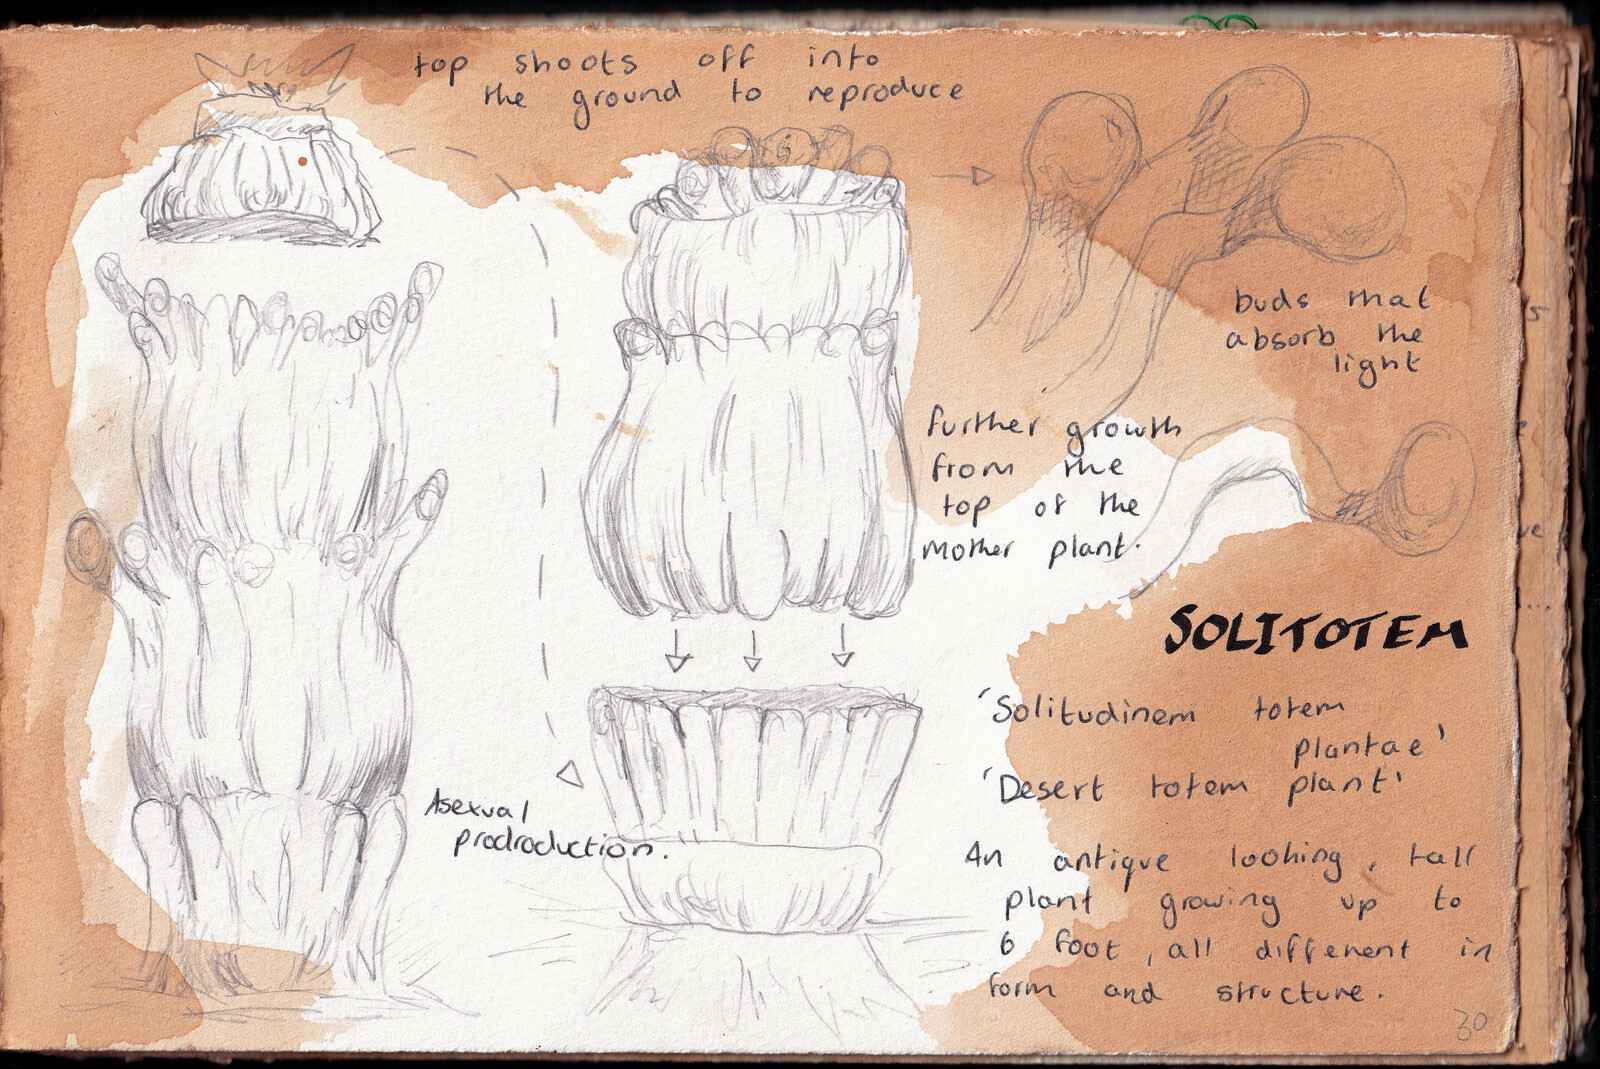 top shoots off into
the ground to reproduce
buds that
absorb the
light
further growth
from the
top of the
Mother plant.
SOLITOTEM
'Solitudinem totem
plantae'
'Desert totem plant'
Asexual
prodroduction.
An antique looking, tall
plant growing up to
6 foot, all different in
form and structure.
30